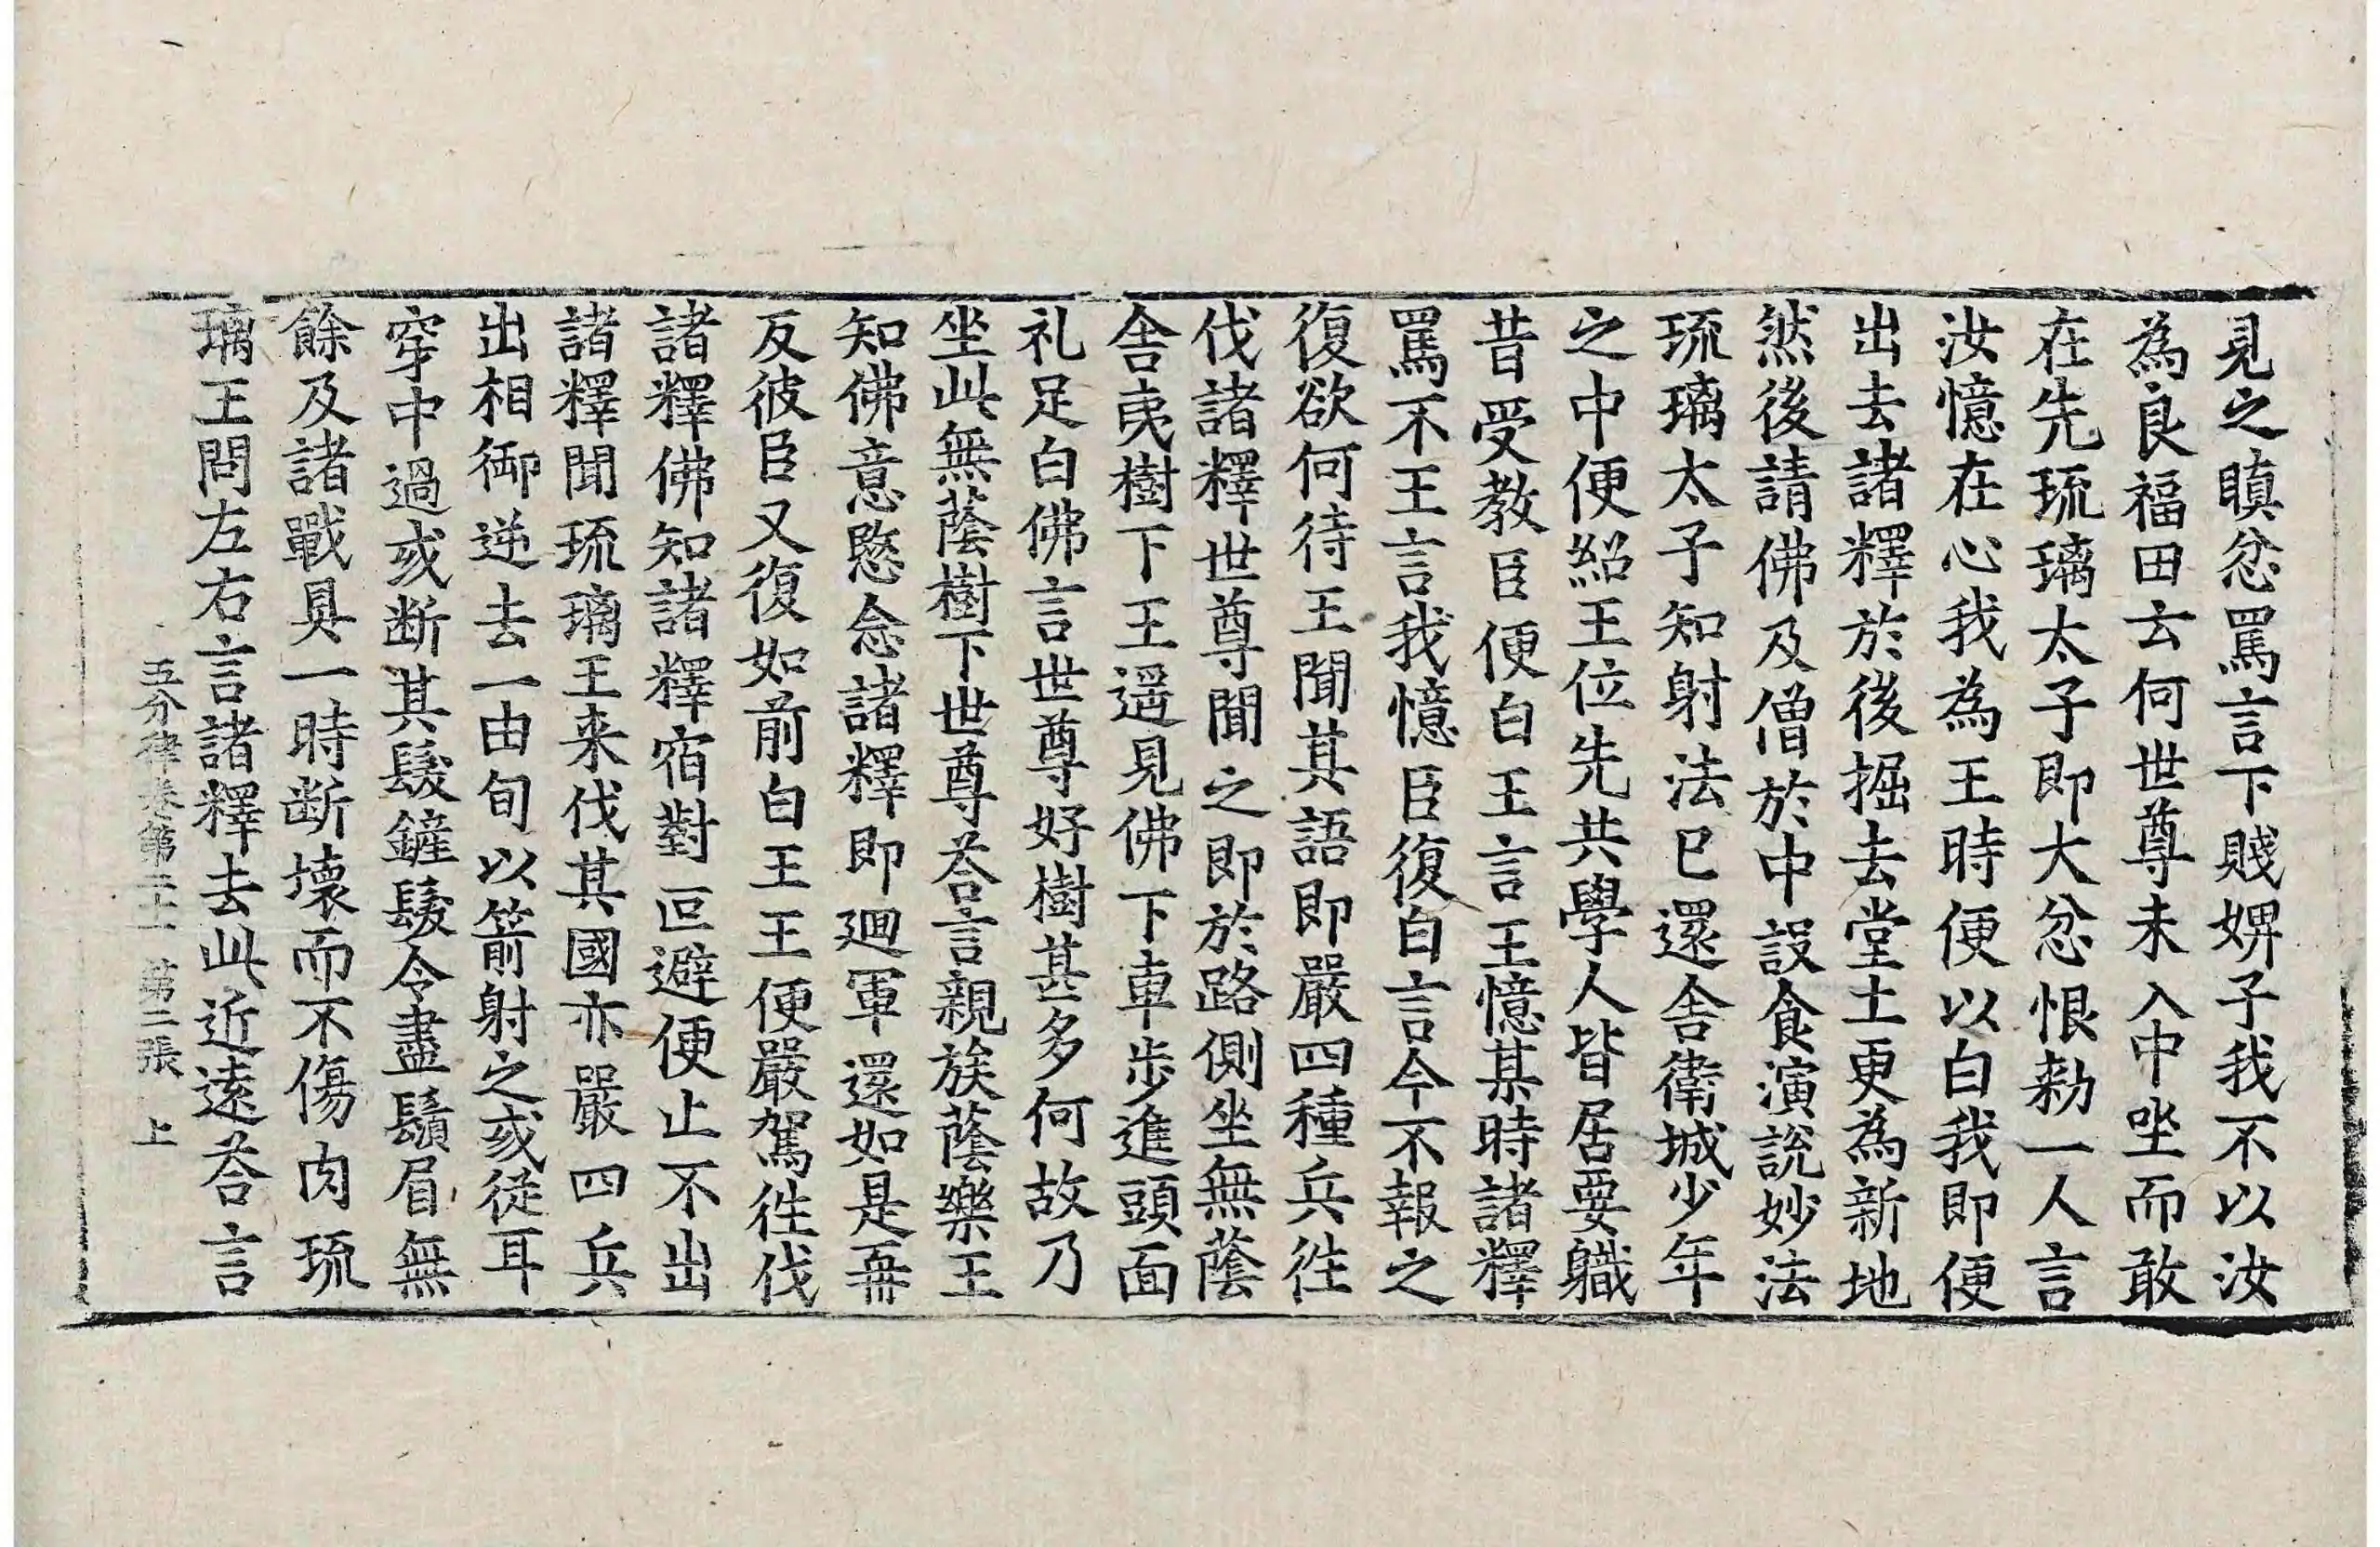 見之瞋忿罵言下賤婢子我不以汝
為良福田云何世尊未入中坐而敢
在先琉璃太子即大忿恨勑一人言
汝憶在心我為王時便以白我即便
出去諸釋於後掘去堂土更為新地
然後請佛及僧於中設食演說妙法
琉璃太子知射法已還舍衛城少年
之中便紹王位先共學人皆居要職
昔受教臣便白王言王憶某時諸釋
罵不王言我憶臣復白言今不報之
復欲何待王聞其語即嚴四種兵往
伐諸釋世尊聞之即於路側坐無蔭
舎夷樹下王遥見佛下車步進頭面
礼足白佛言世尊好樹甚多何故乃
坐此無蔭樹下世尊荅言親族蔭樂王
知佛意愍念諸釋即迴軍還如是再
反彼臣又復如前白王王便嚴駕往伐
諸釋佛知諸釋宿對叵避便止不出
諸釋聞琉璃王来伐其國亦嚴四兵
出相御逆去一由旬以箭射之或從耳
穿中過或断其髮鏟鬚令盡鬚眉無
餘及諸戰具一時断壞而不傷肉琉
璃王問左右言諸釋去此近逺荅言
五分律卷第二十一 第二張 上